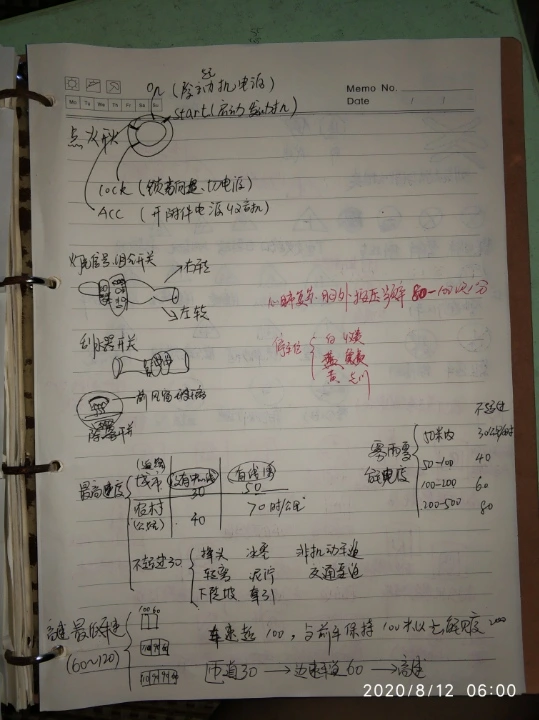 on (发动机电源)
Memo No.
Mo Tu We Th Fr Sa Su
Date / /
start (启动发动机)
点火开关
Lock (锁方向盘、切电源)
Acc (开附件电源 收音机)
灯光信号组合开关
右转
左转
心肺复苏 胸外按压频率 80-100次/分
刮水器开关
停车位
白 收费
黄 专门
前风窗玻璃
除雾开关
雾雨雪
能见度
不超过
50米内 30公里/时
50-100 40
100-200 60
200-500 80
最高速度
(道路)
城市
没有中心线
有线
30
50
(公路)
40
70 时/公里
不超过30
掉头 冰雪 非机动车道
转弯 泥泞
下陡坡 牵引
高速 最低车速
(60~120)
100 60
车速超100,与前车保持100米以上 能见度 200
匝道30 → 加速车道 60 → 高速
2020/8/12 06:00